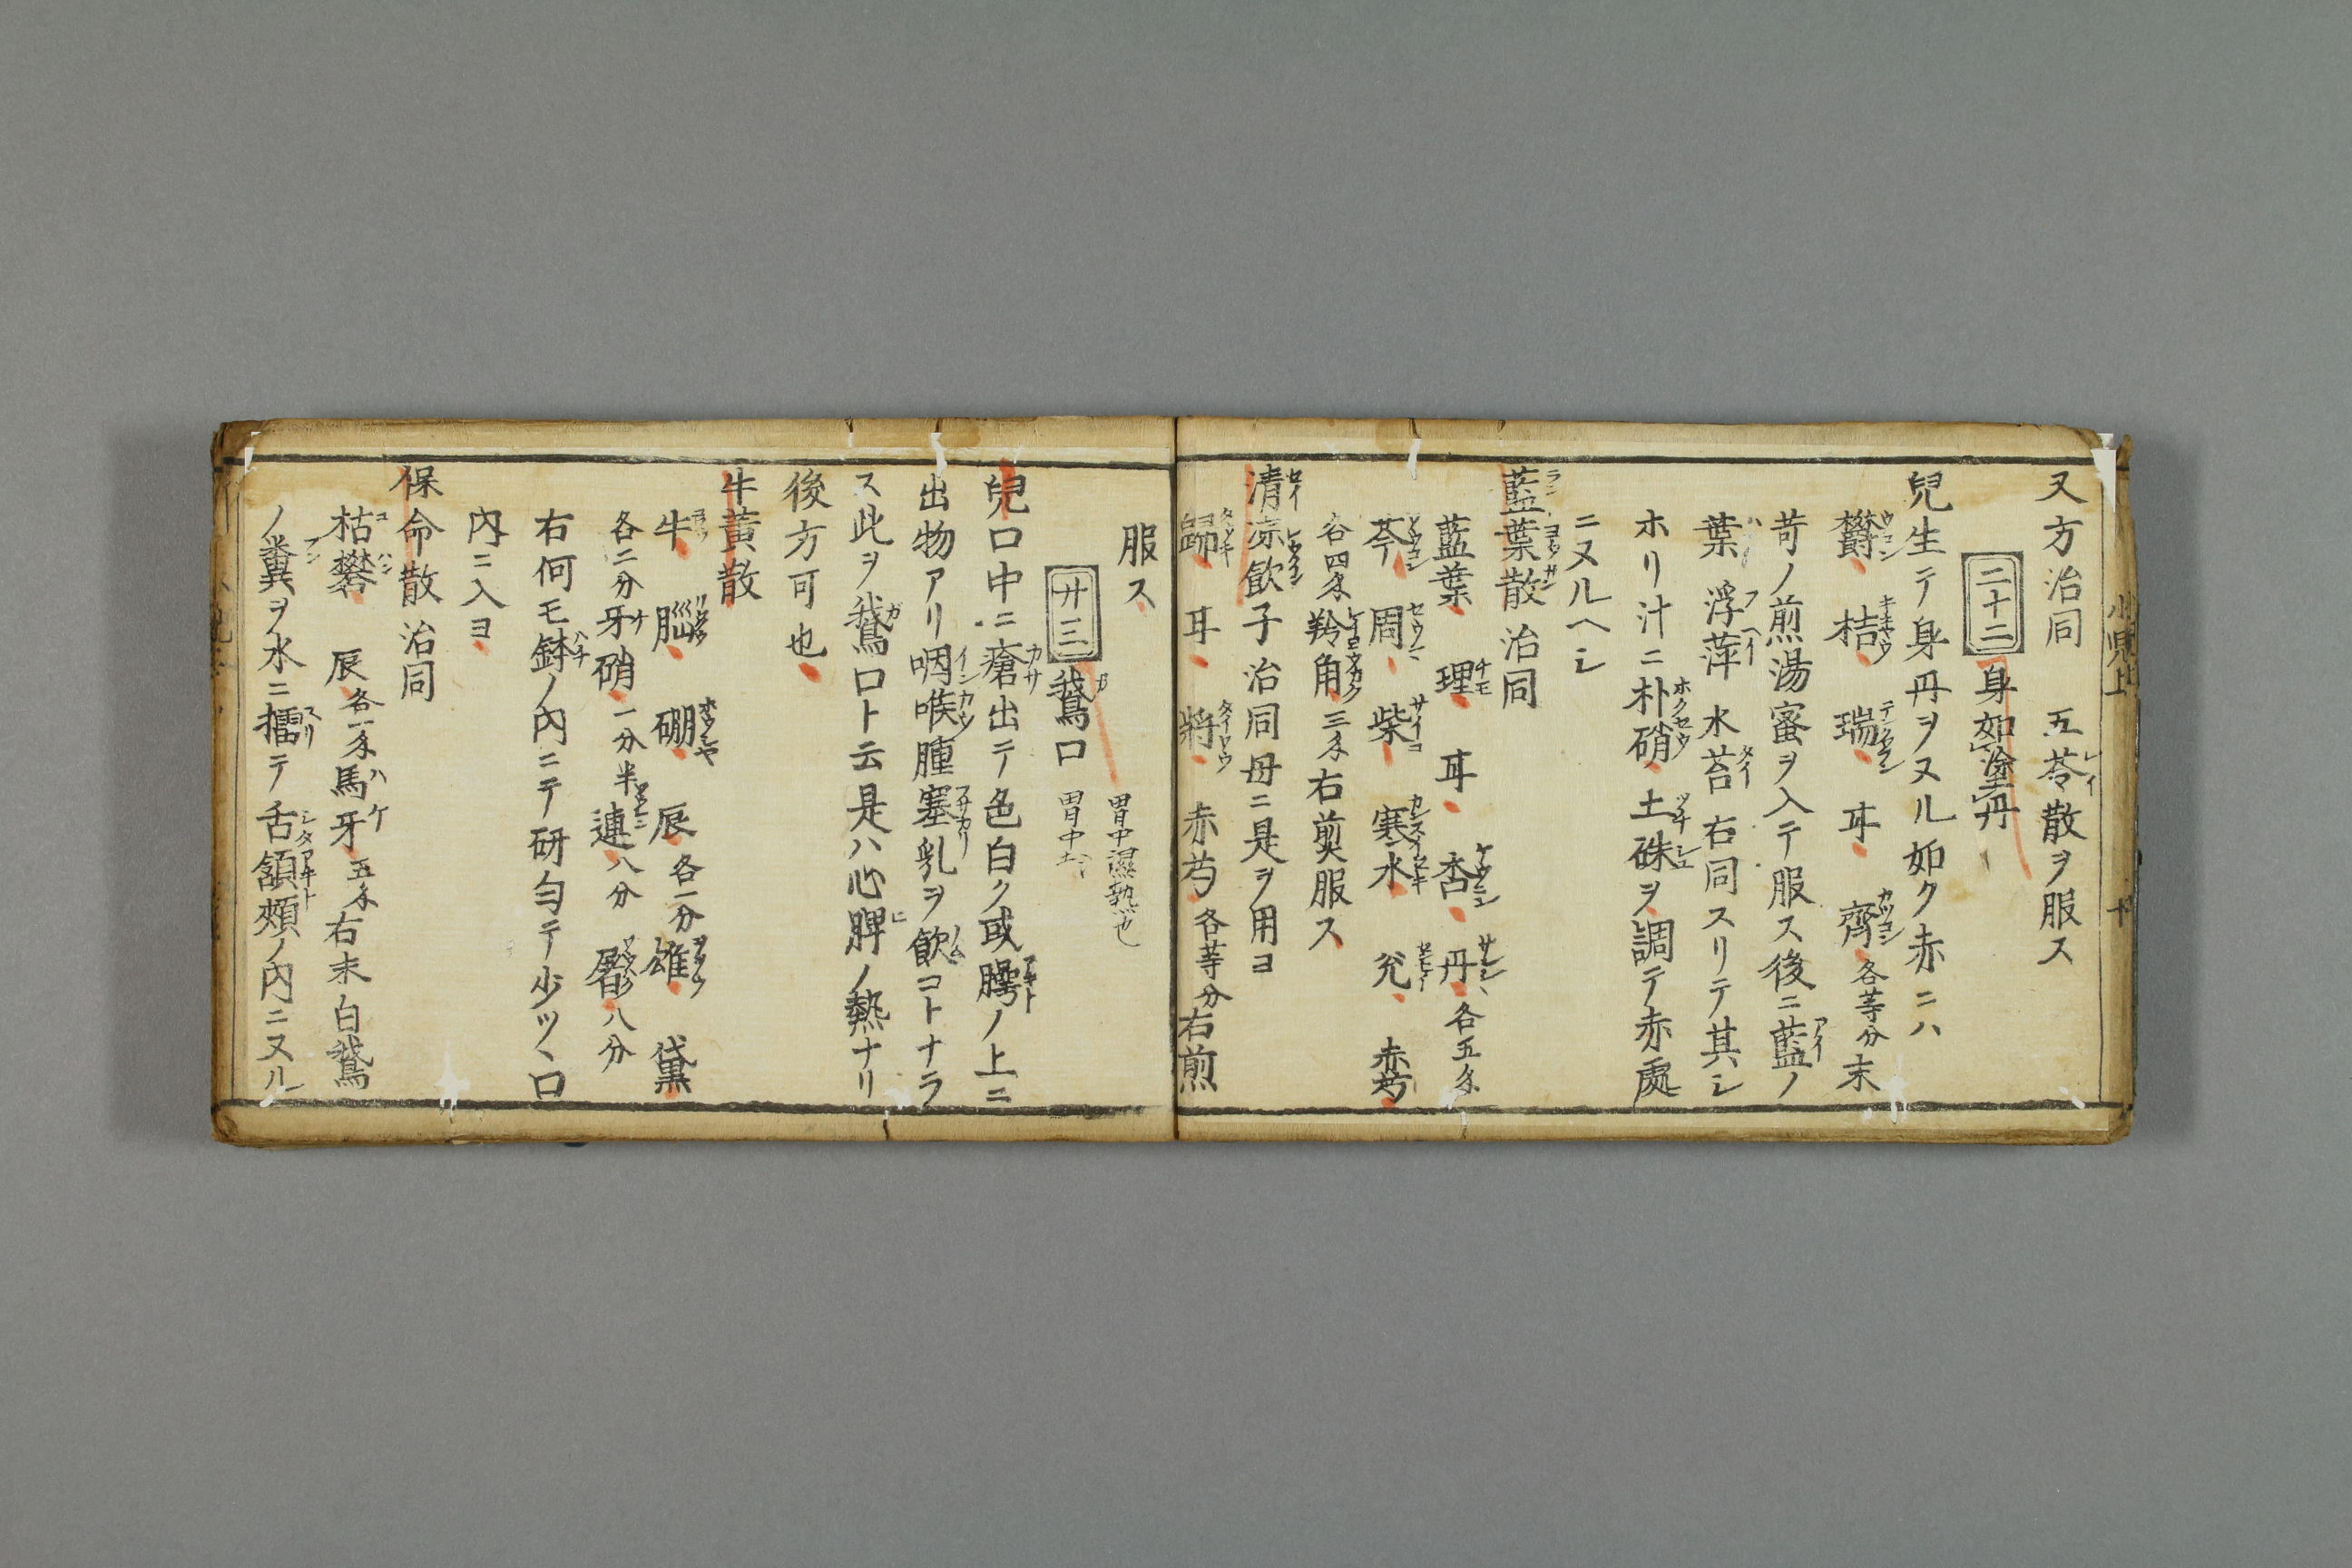 小児上
十
又方治同 五苓散ヲ服ス
二十二 身如塗丹
兒生テ身丹ヲヌル如ク赤ニハ
欝 桔 瑞 耳 齊 各等分 末
苛ノ煎湯蜜ヲ入テ服ス後ニ藍ノ
葉 浮萍 水苔 右同スリテ其シ
ホリ汁ニ朴硝 土硃ヲ調テ赤處
ニヌルヘシ
藍葉散 治同
藍葉 理 耳 杏 丹 各五分
芩 周 柴 寒水 兊 赤芍
各四分 羚角 三分 右煎服ス
清凉飲子 治同 母ニ是ヲ用ヨ
歸 耳 將 赤芍 各等分 右煎
服ス
胃中濕熱也
廿三 鵞口
兒口中ニ瘡出テ色白ク或腭ノ上ニ
出物アリ咽喉腫塞乳ヲ飲コトナラ
ス此ヲ鵞口ト云是ハ心脾ノ熱ナリ
後方可也
牛黄散
牛 腦 硼 辰 各一分 雄 黛
各二分 牙硝 一分半 連 八分 八分
右何モ鉢ノ内ニテ研匀テ少ツヽ口
内ニ入ヨ
保命散 治同
枯礬 辰 各一分 馬牙 五分 右末白鵞
ノ糞ヲ水ニ擂テ舌頷頰ノ内ニヌル